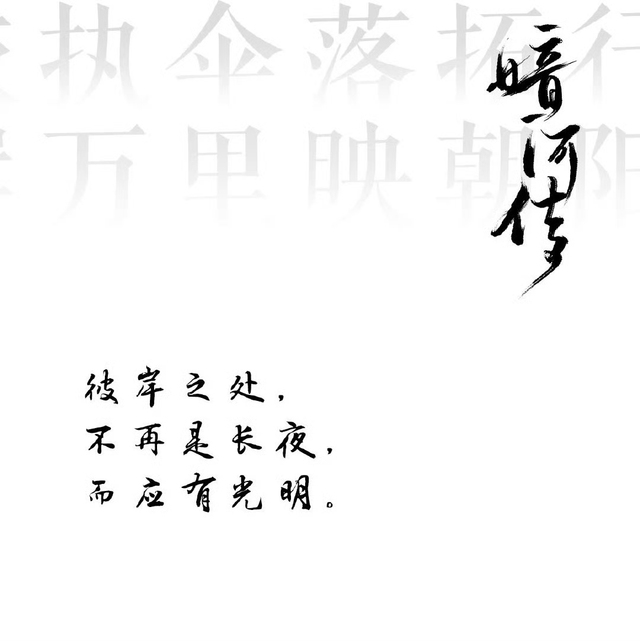 执伞落拓行
万里映朝阳
暗河传
彼岸之处，
不再是长夜，
而应有光明。